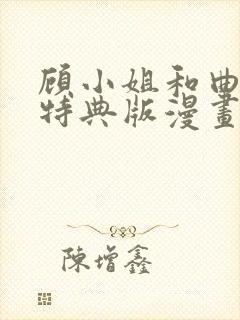 顾小姐和曲
特典版漫畫
陳增鑫